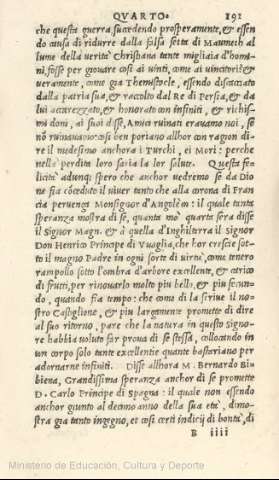 QVARTO. 191
che questa guerra succedendo prosperamente, & essen
do causa di ridurre dalla falsa setta di Maumeth al
lume della verita Christiana tante migliaia d'homi
ni, fosse per giouare cosi ai uinti, come ai uincitori: &
ueramente, come gia Themistocle, essendo discacciato
dalla patria sua, & raccolto dal Re di Persia, & da
lui accarezzato, & honorato con infiniti, & richis
mi doni, ai suoi disse, Amici ruinati erauamo noi, se
nõ ruinauamo: cosi ben poriano allhor con ragion di
re il medesimo anchora i Turchi, ei Mori: perche
nella perdita loro saria la lor salute. Questa fe
licita adunqi spero che anchor vedremo se da Dio
ne fia cõceduto il viuer tanto che alla corona di Fran
cia peruenga Monsignor d'Angolem: il quale tanta
speranza mostra di se, quanta mo quarta sera disse
il Signor Magn. & à quella d'Inghilterra il Signor
Don Henrico Principe di Vuaglia, che hor cresce sot-
to il magno Padre in ogni sorte di uirtù, come tenero
rampollo sotto l'ombra d'arbore excellente, & carico
di frutti, per rinouarlo molto piu bello, & piu fecun-
do, quando fia tempo: che come di la scriue il no-
stro Castiglione, & piu largamente promette di dire
al suo ritorno, pare che la natura in questo Signo-
re habbia uoluto far proua di se stessa, collocando in
un corpo solo tante excellentie quante bastariano per
adornarne infiniti. Disse allhora M. Bernardo Bi-
biena, Grandissima speranza anchor di se promette
D. Carlo Principe di Spagna: il quale non essendo
anchor giunto al decimo anno della sua età, dimo-
stra gia tanto ingegno, et cosi certi indicij di bontà, di
B iiii
Ministerio de Educación, Cultura y Deporte